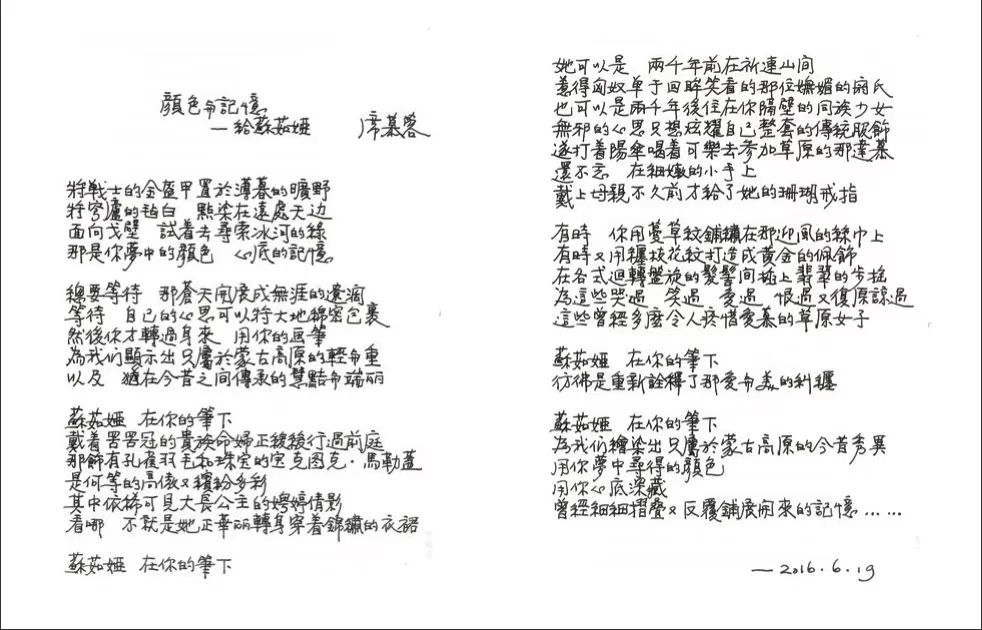 顏色和記憶
—給蘇茹婭 席慕蓉
將戰士的金盔甲置於薄暮的曠野
將穹廬的皓白 點染在遠處天边
面向戈壁 試着去尋索冰河的綠
那是你夢中的顏色 心底的記憶
總要等待 那蒼天開展成無涯的
等待 自己的心思可以將大地綿密包裹
然後你才轉過身來 用你的画筆
為我們顯示出只屬於蒙古高原的輕和重
以及 猶在今昔之間傳承的慧黠和端丽
蘇茹婭 在你的筆下
戴着罟罟冠的貴族命婦正緩緩行過前庭
那飾有孔雀羽毛和珠宝的宝克图克·馬勒蓋
是何等的高傲又繽紛多彩
其中依稀可見大長公主的娉婷倩影
看哪 不就是她正華丽轉身穿着錦繡的衣裙
蘇茹婭 在你的筆下
她可以是 兩千年前在祈連山间
惹得匈奴单于回眸笑看的那位嫵媚的閼氏
也可以是兩千年後住在你隔壁的同族少女
無邪的心思只想炫耀自己整套的傳統服飾
遂打着陽傘喝着可樂去參加草原的那達慕
還不忘 在細嫩的小手上
戴上母親不久前才給了她的珊瑚戒指
有時 你用蔓草紋鋪繡在那迎風的絲巾上
有時又用纏枝花紋打造成黃金的佩飾
在各式迴轉盤旋的髮髻间插上翡翠的步搖
為這些哭過 笑過 愛過 恨過又復原諒過
這些曾經多麼令人疼惜愛慕的草原女子
蘇茹婭 在你的筆下
彷彿是重新詮釋了那愛和美的糾纏
蘇茹婭 在你的筆下
為我們繪染出只屬於蒙古高原的今昔秀異
用你夢中尋得的顏色
用你心底深藏
曾經細細摺疊又反覆鋪展開來的記憶……
—2016.6.19